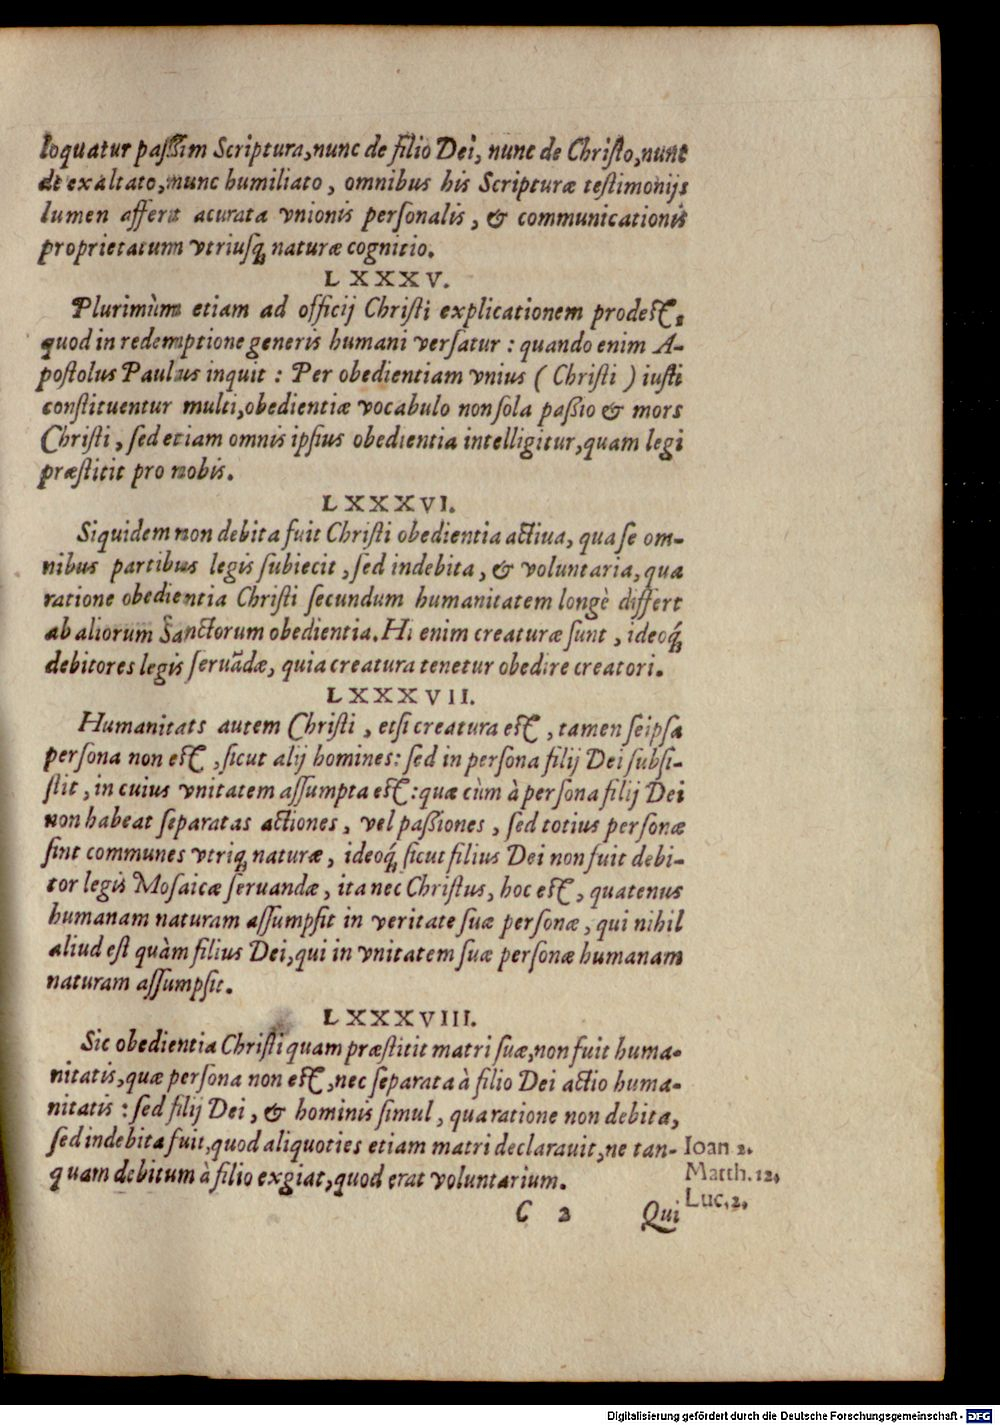 loquatur passim Scriptura, nunc de filio Dei, nunc de Christo, nunc
de exaltato, nunc humiliato, omnibus his Scripturæ testimonijs
lumen affert acurata vnionis personalis, & communicationis
proprietatum vtriusq; naturæ cognitio.
LXXXV.
Plurimùm etiam ad officij Christi explicationem prodest,
quod in redemptione generis humani versatur: quando enim A-
postolus Paulus inquit: Per obedientiam vnius (Christi) iusti
constituentur multi, obedientiæ vocabulo non sola passio & mors
Christi, sed etiam omnis ipsius obedientia intelligitur, quam legi
præstitit pro nobis.
LXXXVI.
Siquidem non debita fuit Christi obedientia actiua, qua se om-
nibus partibus legis subiecit, sed indebita, & voluntaria, qua
ratione obedientia Christi secundum humanitatem longè differt
ab aliorum Sanctorum obedientia. Hi enim creaturæ sunt, ideoq́;
debitores legis seruãdæ, quia creatura tenetur obedire creatori.
LXXXVII.
Humanitats autem Christi, etsi creatura est, tamen seipsa
persona non est, sicut alij homines: sed in persona filij Dei subsi-
stit, in cuius vnitatem assumpta est: quæ cùm à persona filij Dei
non habeat separatas actiones, vel passiones, sed totius personæ
sint communes vtriq; naturæ, ideoq́; sicut filius Dei non fuit debi-
tor legis Mosaicæ seruandæ, ita nec Christus, hoc est, quatenus
humanam naturam assumpsit in veritate suæ personæ, qui nihil
aliud est quàm filius Dei, qui in vnitatem suæ personæ humanam
naturam assumpsit.
LXXXVIII.
Sic obedientia Christi quam præstitit matri suæ, non fuit huma-
nitatis, quæ persona non est, nec separata à filio Dei actio huma-
nitatis: sed filij Dei, & hominis simul, qua ratione non debita,
sed indebita fuit, quod aliquoties etiam matri declarauit, ne tan-
quam debitum à filio exgiat, quod erat voluntarium.
Ioan 2.
Matth. 12,
Luc. 2,
C 2 Qui
Digitalisierung gefördert durch die Deutsche Forschungsgemeinschaft - DFG